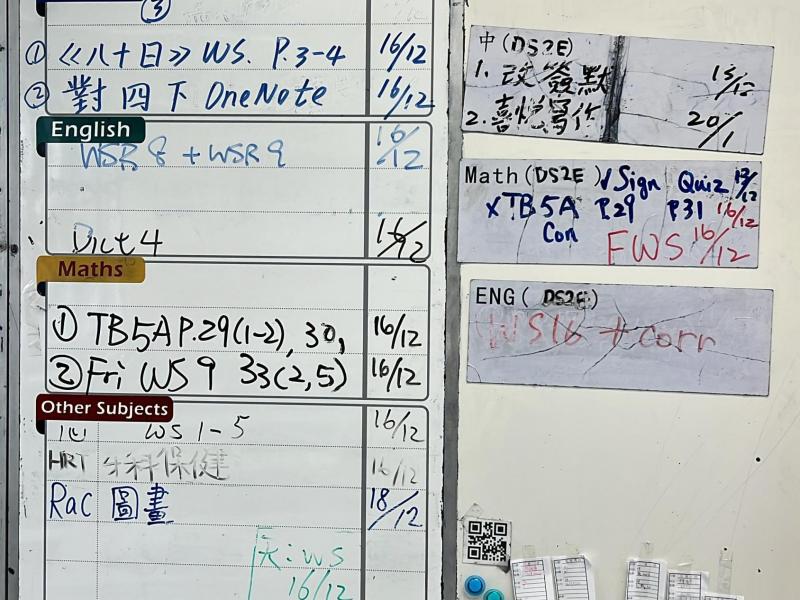 ③
① 《八十日》 WS. P.3-4 16/12
② 對四下 OneNote 16/12
English
WSR 8 + WSR 9 16/12
Dict 4 16/12
Maths
① TB5A P.29(1-2), 30, 16/12
② Fri WS 9 33(2,5) 16/12
Other Subjects
WS 1-5 16/12
HRT 牙科保健 16/12
Rac 圖畫 18/12
WS
16/12
中(DS2E)
1. 改簽默 13/12
2. 喜悅寫作 20/1
Math(DS2E) √ Sign Quiz 13/12
x TB 5A P.29 P31 16/12
Con FWS 16/12
ENG( DS2E)
WS16 + corr